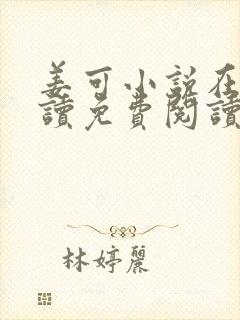 姜可小說在
讀免費閱讀
林婷麗